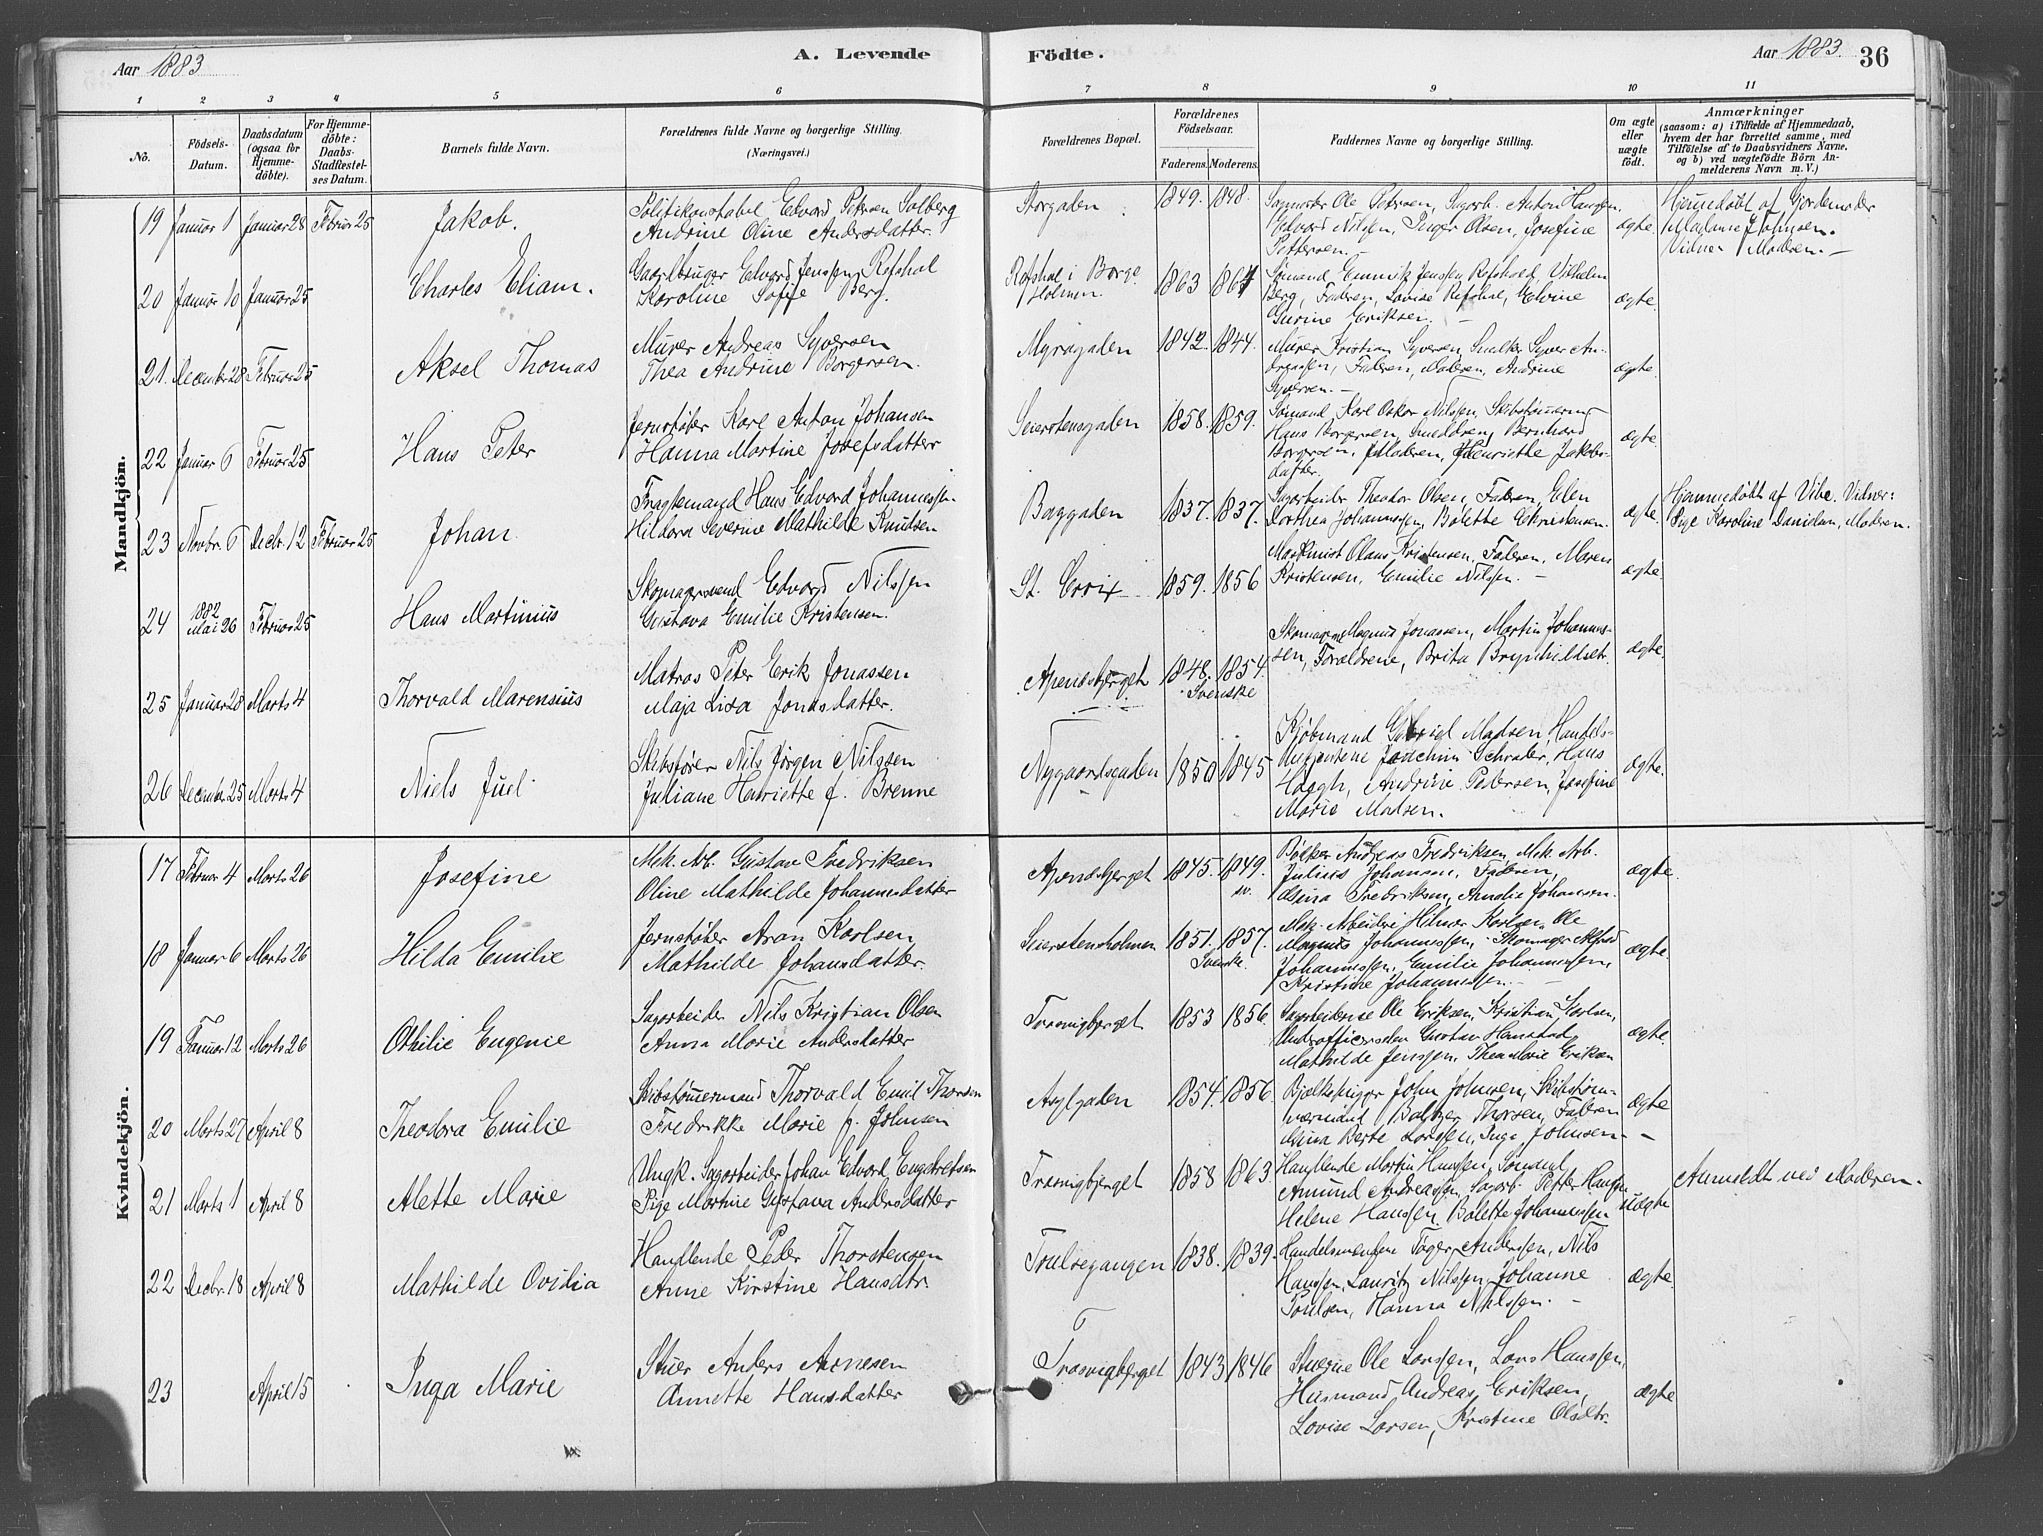 Aar 1883
A. Levende
Födte.
Aar 1883.
36
1 2 3 4 5 6 7 8 9 10 11
No.
Födsels-
Datum.
Daabsdatum
(ogsaa för
Hjemme-
döbte).
For Hjemme-
döbte:
Daabs-
Stadfæstel-
ses Datum.
Barnets fulde Navn.
Forældrenes fulde Navne og borgerlige Stilling.
(Næringsvei.)
Forældrenes Bopæl.
Forældrenes
Födselsaar.
Faderens. Moderens.
Faddernes Navne og borgerlige Stilling.
Om ægte
eller
uægte
födt.
Anmærkninger
(saasom: a) i Tilfælde af Hjemmedaab,
hvem der har forrettet samme, med
Tilföielse af to Daabsvidners Navne.
og b) ved uægtefödte Börn An-
melderens Navn m.V.)
Mandkjön.
19 Januar 1 Januar 28 Februar 25 Jakob.
Politikonstabel Edvard Petersen Solberg
Andrine Oline Andersdatter.
Storgaden 1849. 1848.
Sagmester Ole Petersen, Sagarb. Anton Hansen,
Edvard Nilsen, Inger Olsen, Josefine
Pettersen.
ægte.
Hjemmedöbt af Gjordemoder
Madame Johnsen.
Vidner Moderen. —
20 Januar 10 Januar 25 Charles Eliam.
Gaardbruger Edvard Jenssen Refshal
Karoline Sofie Berg.
Refshal i Borge
Holmen. 1863 1864
Sömand Emmrik Jenssen Refshold, Vilhelm
Berg, Faderen, Lovise Refshal, Elvine
Gurine Eriksen. —
ægte.
21. December 28 Februar 25 Aksel Thomas
Murer Andreas Syversen
Thea Andrine Borgersen.
Myragaden 1842. 1844.
Murer Kristian Syversen, Snedker Syver An-
dreassen, Faderen, Moderen, Andrine
Syversen. —
ægte.
22 Januar 6 Februar 25 Hans Peter
Jernstöber Karl Anton Johansen
Hanna Martine Josefsdatter
Seierstensgaden 1858. 1859.
Sömand Karl Oskar Nilssen, Skibstömmerm.
Hans Borgersen, Smeddren, Bernhard
Borgersen, Moderen, Henriette Jakobs-
datter.
ægte.
23 Novbr. 6 Decbr. 12 Februar 25 Johan
Fragtemand Hans Edvard Johannessen.
Hildora Severine Mathilde Knudsen
Baggaden 1837. 1837.
Sagarbeider Theodor Olsen, Faderen, Elen
Dorthea Johannessen, Bolette Christensen.
ægte.
Hjemmedöbt af Vibe. Vidner:
Pige Karoline Danielsen, Moderen.
24 1882
Mai 26 Februar 25 Hans Martinius
Skomagersvend Edvard Nilssen
Gustava Emilie Kristensen.
St. Croix 1859. 1856
Maskinist Olaus Kristensen, Faderen, Maren
Kristensen, Emilie Nilssen. —
ægte.
25 Januar 28 Marts 4 Thorvald Marensius
Matros Peter Erik Jonassen
Maja Lisa Jonasdatter.
Apenesbjerget 1848. 1854.
Svenske
Skomager Magnus Jonassen, Martin Johannes-
sen, Forældrene, Brita Brynhildset.
ægte.
26 December 25 Marts 4 Niels Juel
Skibsförer Nils Jörgen Nilssen
Juliane Henriette f. Brenne
Nygaardsgaden 1850 1845
Kjöbmand Gabriel Madsen, Handels-
Joachim Schrader, Hans
Haagh, Andrine Pedersen, Josefine
Marie Madsen.
ægte.
Kvindekjön.
17 Februar 4 Marts 26 Josefine
Mek. Arb. Gustav Fredriksen
Oline Mathilde Johannesdatter
Apenesbjerget 1845. 1849.
sv.
Bödker Andreas Fredriksen, Mek. Arb.
Julius Johansen, Faderen,
Olsina Fredriksen, Amalie Johansen.
ægte.
18 Januar 6 Marts 26 Hilda Emilie
Jernstöber Aron Karlsen
Mathilde Johansdatter.
Seierstensholmen 1851. 1857.
Svensk.
Mek. Arbeidere Hilmar Karlsen, Ole
Magnus Johannessen, Skomager Alfred
Johannessen, Emilie Johannessen,
Kristine Johannessen. —
ægte.
19 Januar 12 Marts 26 Othilie Eugenie
Sagarbeider Nils Kristian Olsen
Anna Marie Andersdatter
Trosvigbjerget 1853 1856.
Sagarbeiderne Ole Eriksen, Kristian Karlsen,
Underofficer Gustav Hanestad
Mathilde Jenssen, Thea Marie Eriksen
ægte.
20 Marts 27 April 8 Theodora Emilie
Skibstömmermand Thorvald Emil Thorsen
Fredrikke Marie f. Johnsen
Asylgaden 1854. 1856.
Bjelkehugger John Johnsen, Skibstöm-
mermand Baltzer Thorsen, Faderen
Mina Berte Larssen, Inga Johnsen. —
ægte
21 Marts 1 April 8 Alette Marie
Ungk. Sagarbeider Johan Edvard Engebretsen
Pige Martine Gustava Andersdatter
Trosvigbjerget 1858 1863
Handlende Martin Hanssen, Sömand
Amund Andreassen, Sagarb. Petter Hansen
Helene Hanssen, Bolette Johannessen
uægte
Anmeldt ved Moderen.
22 Decbr. 18 April 8 Mathilde Ovidia
Handlende Peder Thorstensen
Anne Kirstine Hansdtr.
Trulsegangen 1838. 1839.
Handelsmændene Tager Andersen, Nils
Hanssen, Lauritz Nilssen, Johanne
Poulsen, Hanna Nilssen. —
ægte.
23 April 15 Inga Marie
Stuer Anders Arnesen
Annette Hansdatter
Trosvigbjerget 1843 1846
Stuerne Ole Larssen, Lars Hanssen,
Husmand Andreas Eriksen,
Lovise Larsen, Kristine Olsdtr.
ægte